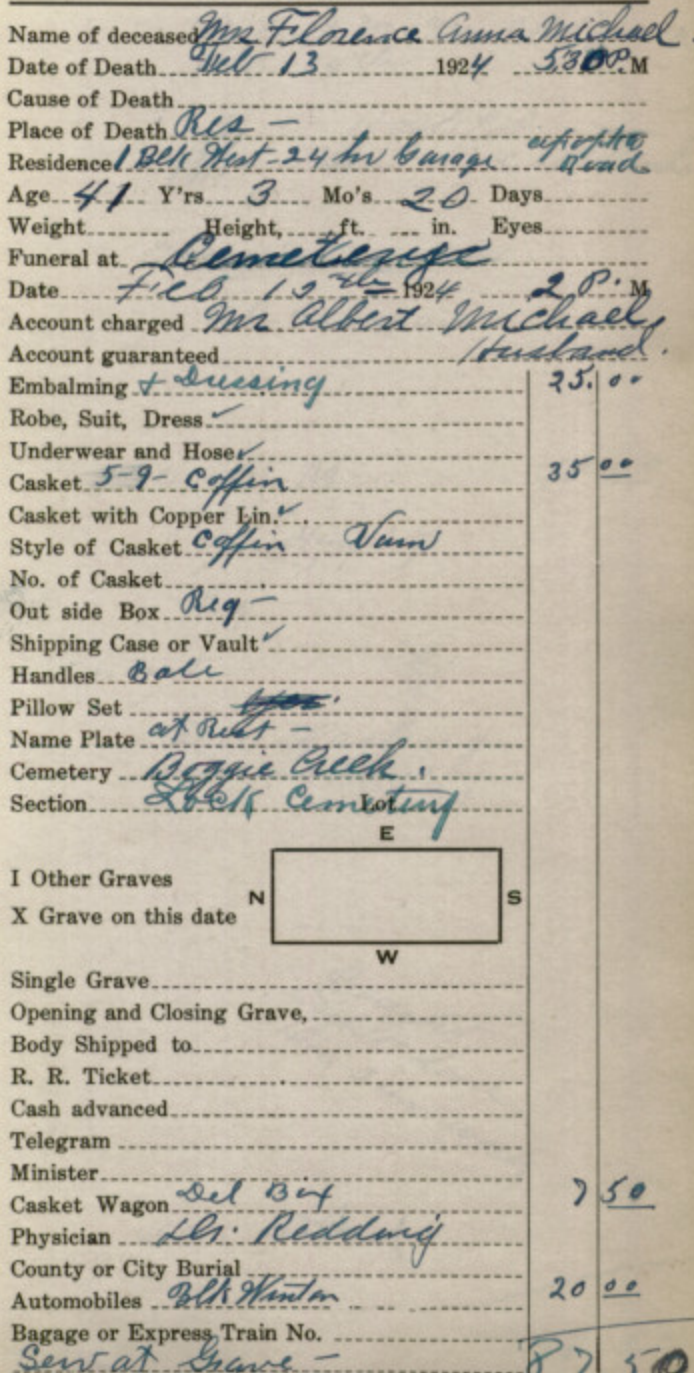 Name of deceased Mrs Florence Anna Michael
Date of Death Feb 13 1924 530 P. M
Cause of Death
Place of Death Res -
Residence 1 Blk West - 24 hr Garage Road
Age 41 Y'rs 3 Mo's 20 Days
Weight Height, ft. in. Eyes
Funeral at Cemetery
Date Feb 15th 1924 2 P. M
Account charged Mr Albert Michael,
Account guaranteed Husband.
Embalming & Dressing 25.00
Robe, Suit, Dress ✓
Underwear and Hose ✓
Casket 5-9- Coffin 35 00
Casket with Copper Lin. ✓
Style of Casket Coffin
No. of Casket
Out side Box Reg -
Shipping Case or Vault ✓
Handles Bale
Pillow Set
Name Plate at Rest -
Cemetery Boggie Creek.
Section Lock Cemetery Lot
E
I Other Graves
N S
X Grave on this date
W
Single Grave
Opening and Closing Grave,
Body Shipped to
R. R. Ticket
Cash advanced
Telegram
Minister
Casket Wagon Del Box 7 50
Physician Dr. Redding
County or City Burial
Automobiles Blk Winton 20 00
Bagage or Express Train No.
Serv at Grave - 87 50